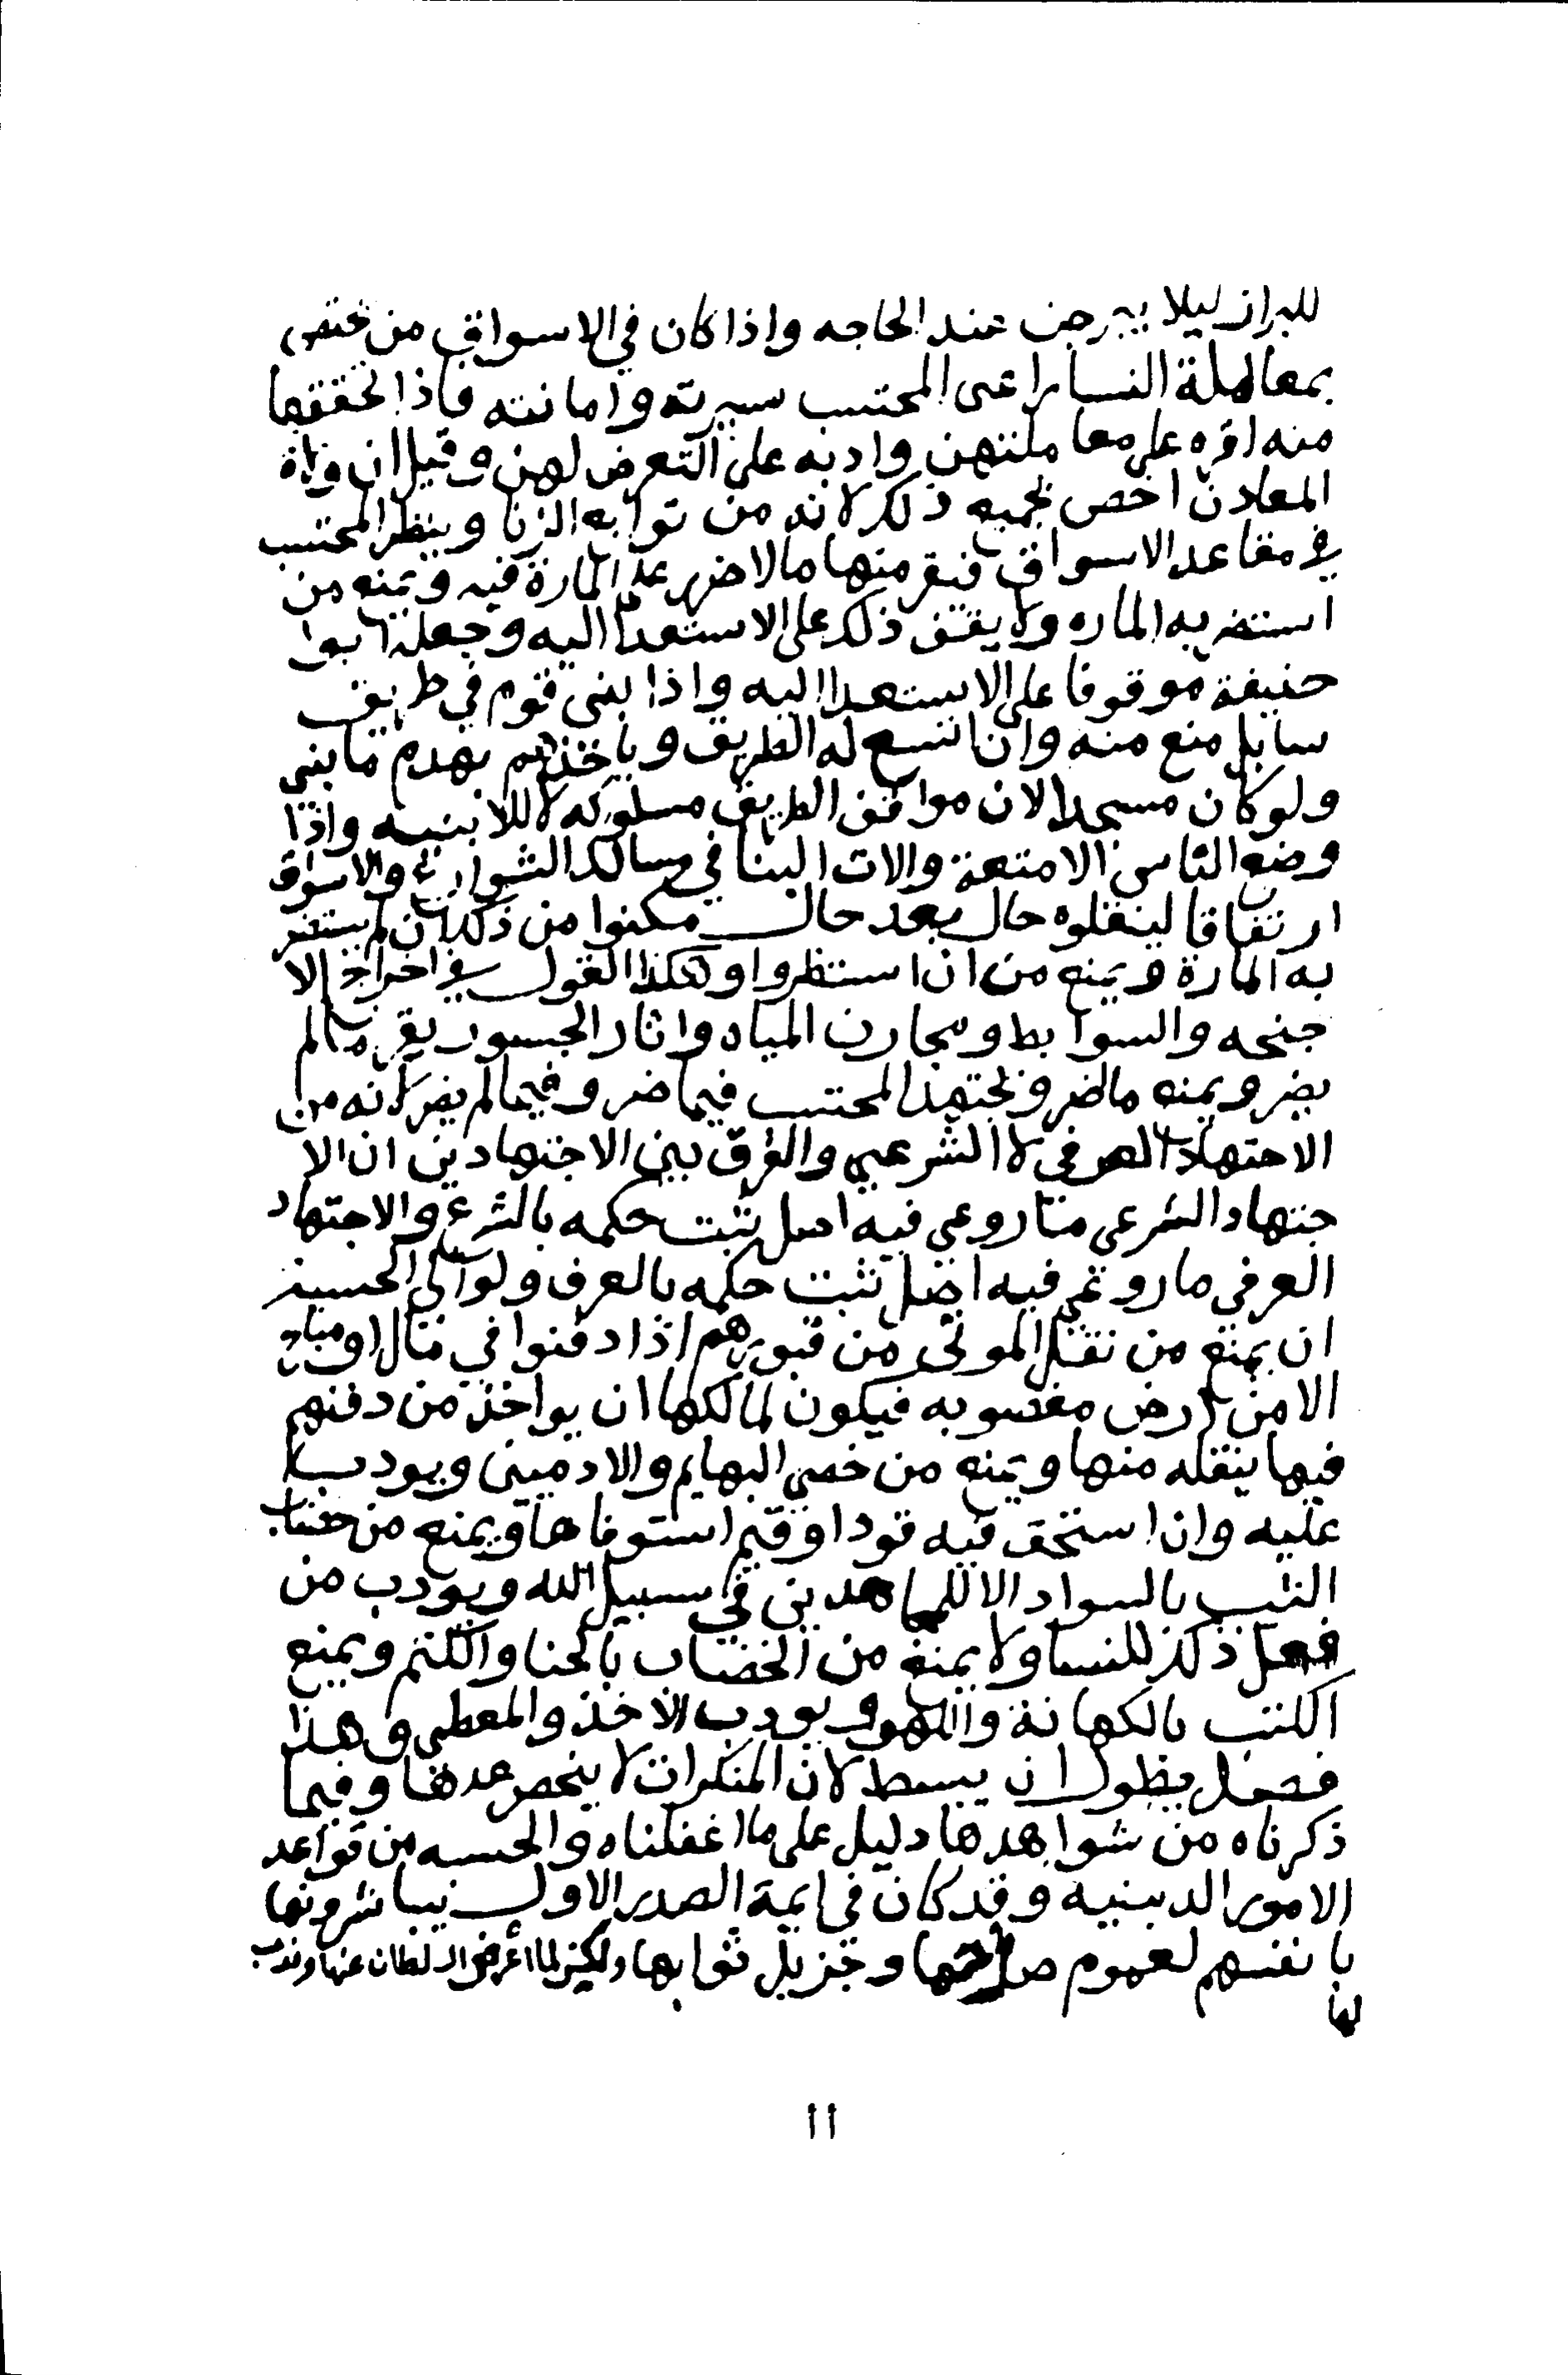 للبراز ليلا يتبرجن عند الحاجه واذا كان في الاسواق من يختص
بمعاملة النسا راعى المحتسب سيرته وامانته فاذا تحققها
منه اقره على معاملتهن وادبه على التعرض لهن وقيل ان ولاة
المعادن اخص بحميه ذلك لانه من توابه الزنا وينظر المحتسب
في مقاعد الاسواق فيقر منها مالا ضرر على المارة فيه ويمنع من
استضر به الماره ولا يقف ذلك على الاستعدا اليه وجعله ابوا
حنيفة موقوفا على الاستعدا اليه واذا بنى قوم في طريق
سابل منع منه وان اتسع له الطريق وياخذهم بهدم ما بنى
ولو كان مسجدا لان موافق الطريق مسلوكه لا للابنيه واذا
وضع الناس الامتعة والات البنا في مسالك الشوارع والاسواق
ارتفاقا لينقلوه حال بعد حال مكنوا من ذلك ان لم يستضر
به المارة ويمنع من ان استظروا وهكذا القول في اخراج الا
جنحه والسوابط ومجارن المياه واثار الجسور يقر مالم
يضر ويمنع ماضر ويجتهد المحتسب فيما ضر وفيما لم يضر لانه من
الاجتهاد العرفى لا الشرعي والفرق بين الاجتهادين ان الا
جتهاد الشرعي ما روعي فيه اصل يثبت حكمه بالشرع والاجتهاد
العرفي ما روعي فيه اصل تثبت حكمه بالعرف ولوالى الحسبه
ان يمنع من نقل الموتى من قبورهم اذا دفنوا في مال او مباح
الا من ارض مغصوبه فيكون لمالكها ان يواخذ من دفنهم
فيها ينقله منها ويمنع من خصي البهايم والادميين ويودب
عليه وان استحق فيه قودا وقيم استوفاها ويمنع من خضاب
الشيب بالسواد الا للمجاهدين في سبيل الله ويودب من
فعل ذلك للنسا ولا يمنع من الخضاب بالحنا والكتم ويمنع
اكلتب بالكهانة واللهو ويودب الاخذ والمعطى وهذا
فصل يطول ان يبسط لان المنكرات لا ينحصر عددها وفيما
ذكرناه من شواهدها دليل على ما اغفلناه والحسبه من قواعد
الامور الدينيه وقد كان في ايمة الصدر الاول يباشرونها
بانفسهم لعموم صلاحها وجزيل ثوابها ولكن لما اعرض السلطان عنها وندب
لها
١١